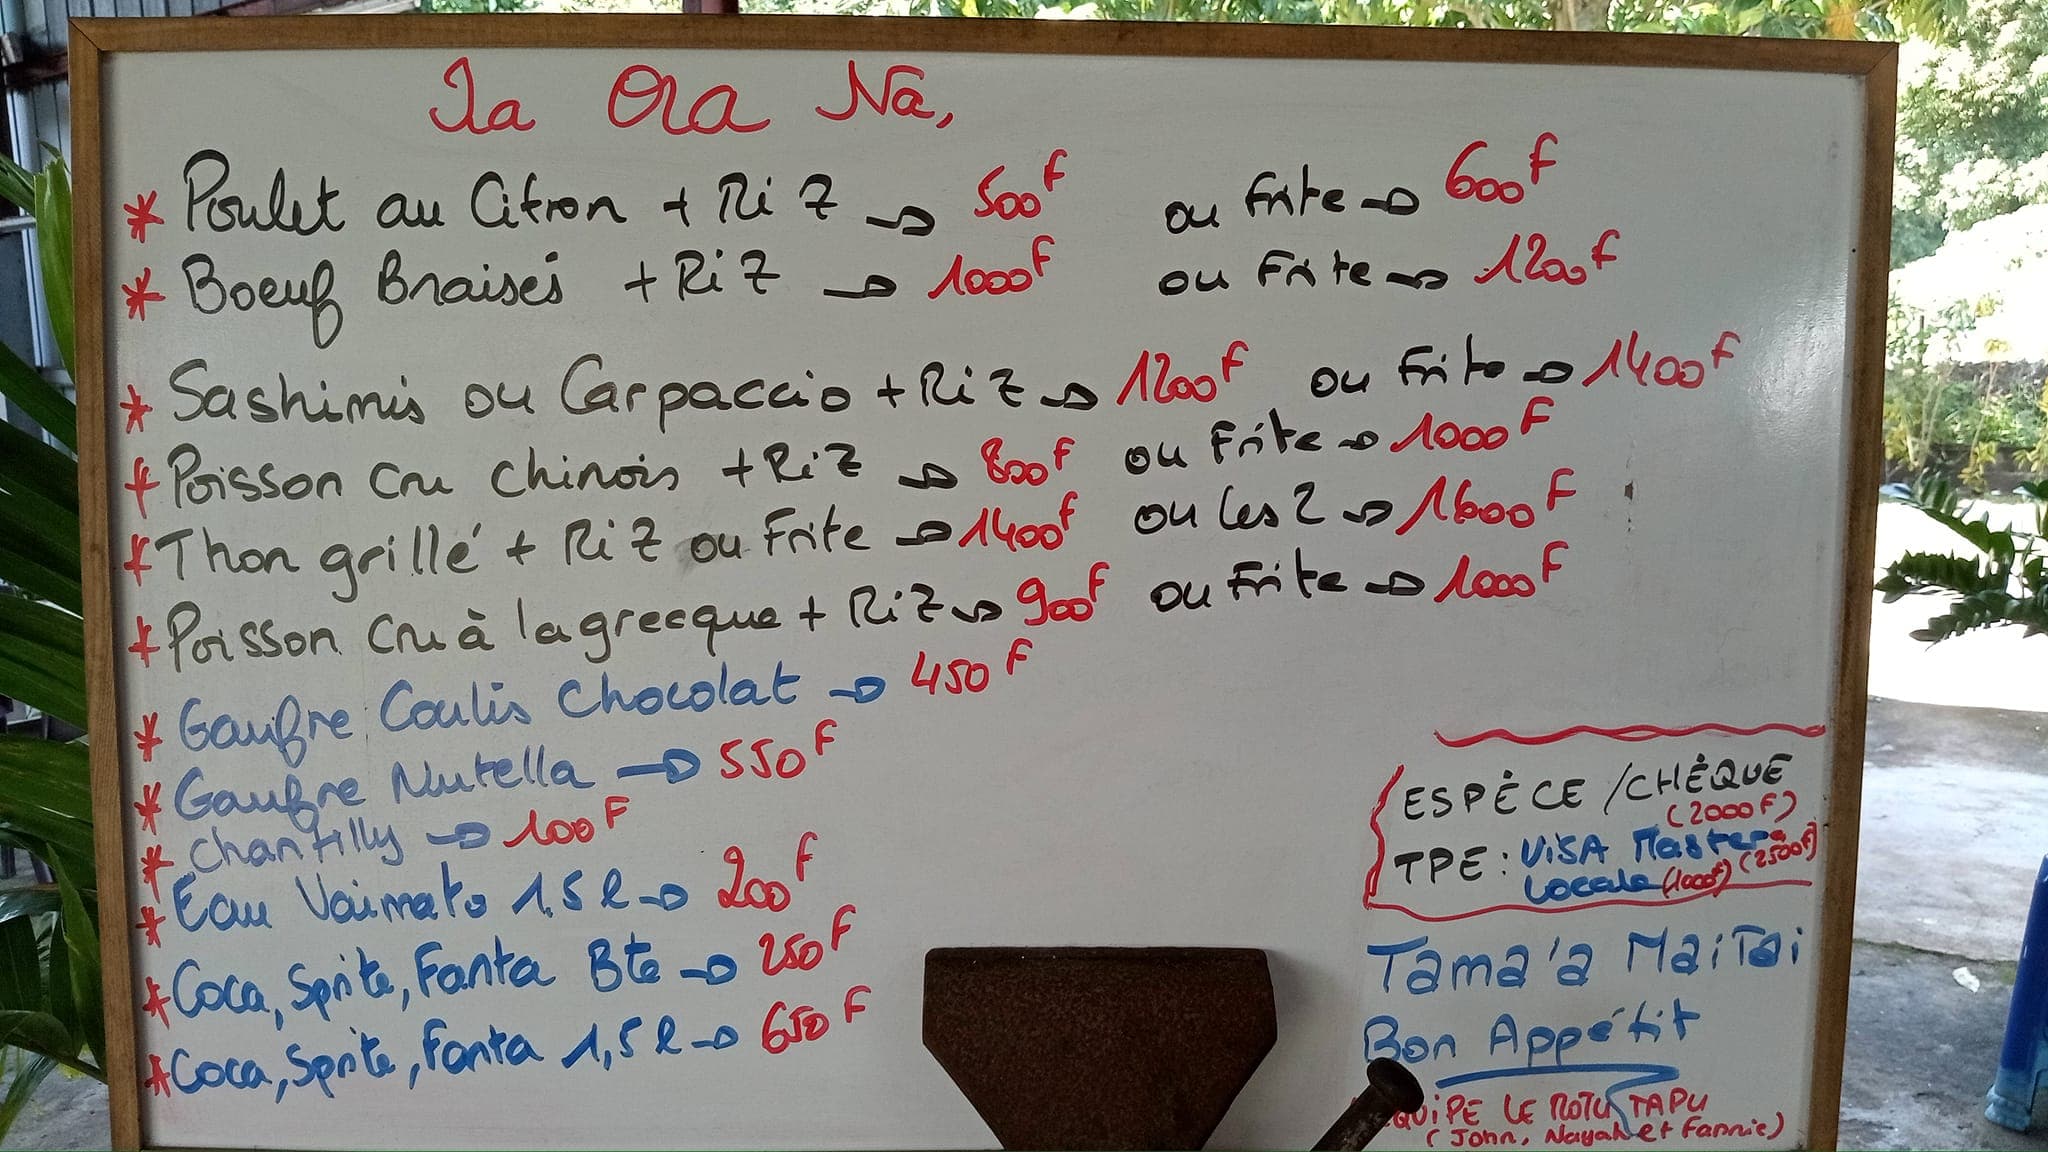 Ia Ora Na,
* Poulet au Citron + RiZ → 500F ou Frite → 600F
* Boeuf Braisés + RiZ → 1000F ou Frite → 1200F
* Sashimis ou Carpaccio + RiZ → 1200F ou Frite → 1400F
* Poisson cru chinois + RiZ → 800F ou Frite → 1000F
* Thon grillé + RiZ ou Frite → 1400F ou les 2 → 1600F
* Poisson cru à la grecque + RiZ → 900F ou Frite → 1000F
* Gaufre Coulis Chocolat → 450F
* Gaufre Nutella → 550F
* Chantilly → 100F
* Eau Vaimato 1.5l → 200F
* Coca, Sprite, Fanta Bte → 250F
* Coca, Sprite, Fanta 1,5l → 650F
ESPÈCE / CHÈQUE
(2000F)
TPE: ViSA Master (2500F)
Locale (1000F)
Tama'a MaiTai
Bon Appétit
QUiPE LE ROTUI TAPU
(John, Nayah et Fannie)